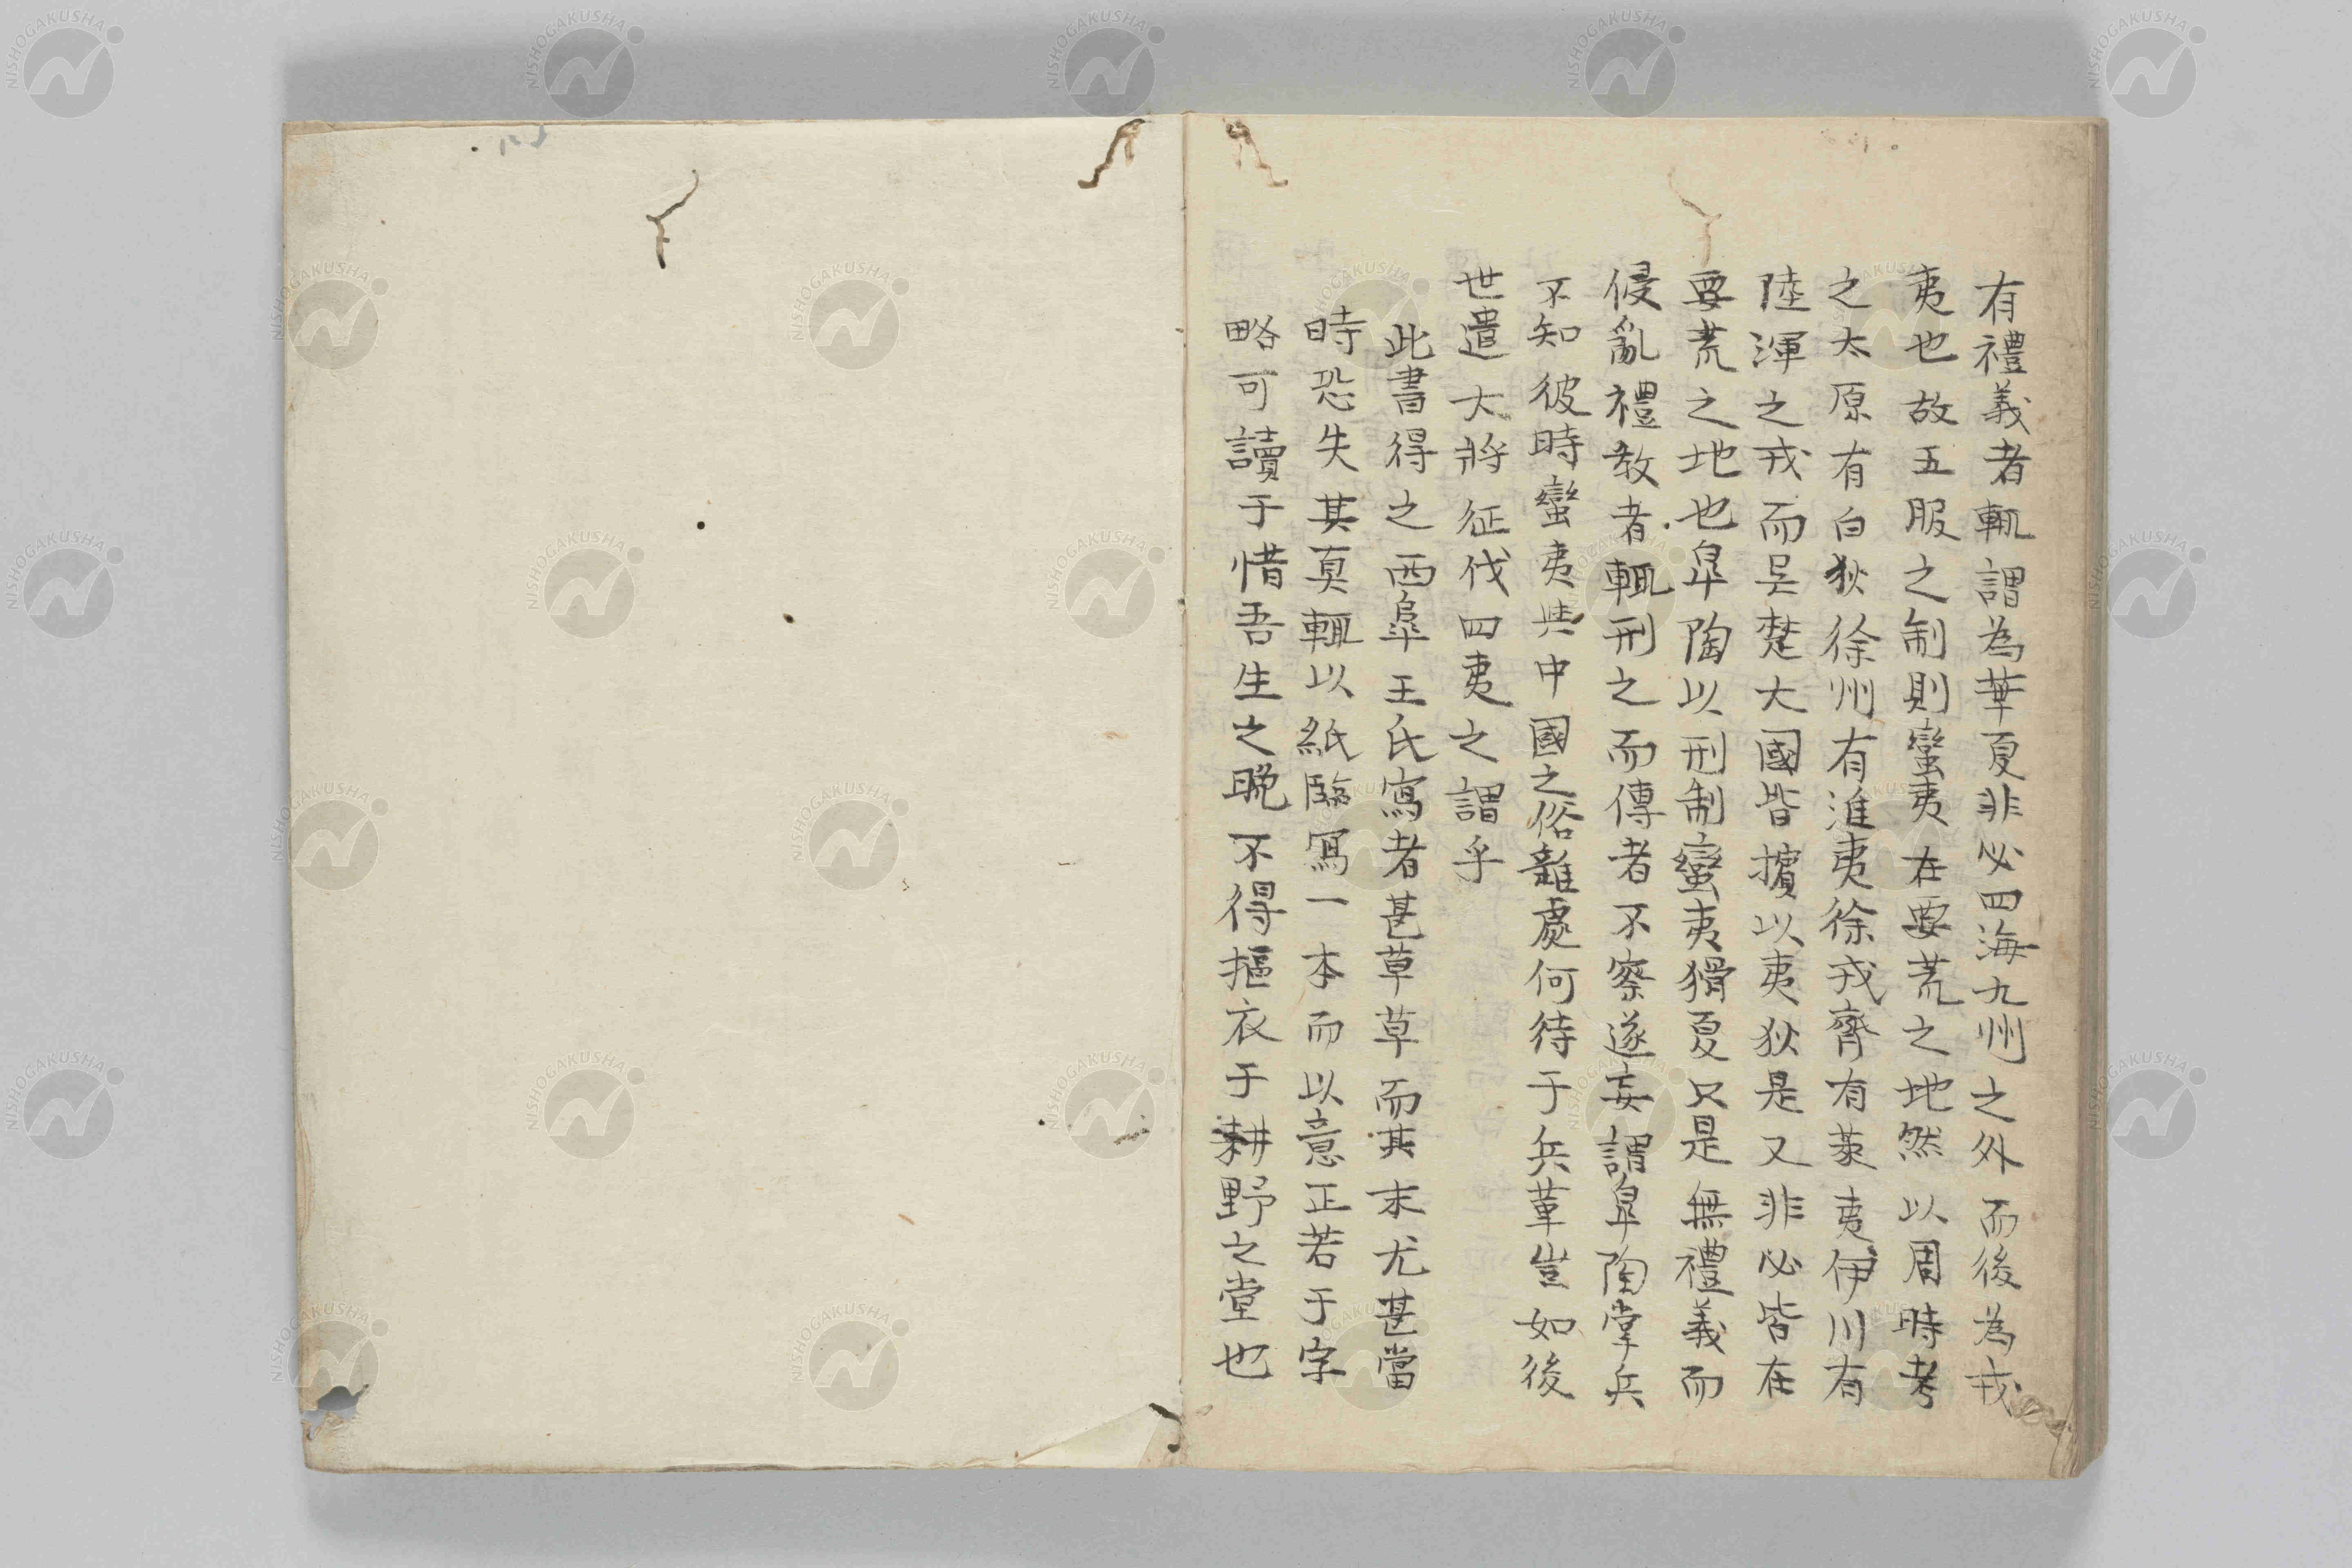 有禮義者輒謂為華夏非必四海九州之外而後為戎
夷也故五服之制則蠻夷在要荒之地然以周時考
之太原有白狄徐州有淮夷徐戎齊有萊夷伊川有
陸渾之戎而吴楚大國皆擯以夷狄是又非必皆在
要荒之地也皐陶以刑制蠻夷猾夏只是無禮義而
侵亂禮教者輒刑之而傳者不察遂妄謂皐陶掌兵
不知彼時蠻夷與中國之俗雜處何待于兵革豈如後
世遣大將征伐四夷之謂乎
此書得之西皐王氏寫者甚草草而其末尤甚當
時恐失其真輒以紙臨寫一本而以意正若于字
略可讀于惜吾生之晚不得摳衣于耕野之堂也
NISHOGAKUSHA